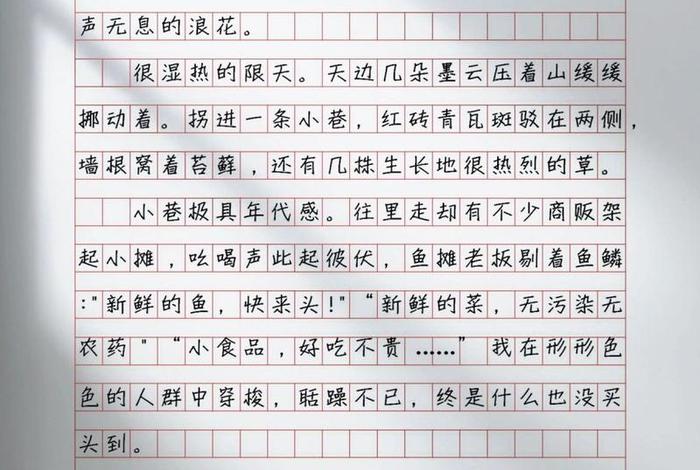 声无息的浪花。
很湿热的限天。天边几朵墨云压着山缓缓
挪动着。拐进一条小巷，红砖青瓦斑驳在两侧，
墙根窝着苔藓，还有几株生长地很热烈的草。
小巷极具年代感。往里走却有不少商贩架
起小摊，吆喝声此起彼伏，鱼摊老板剔着鱼鳞
:"新鲜的鱼，快来头!"“新鲜的菜，无污染无
农药"“小食品，好吃不贵……”我在形形色
色的人群中穿梭，聒躁不已，终是什么也没买
头到。